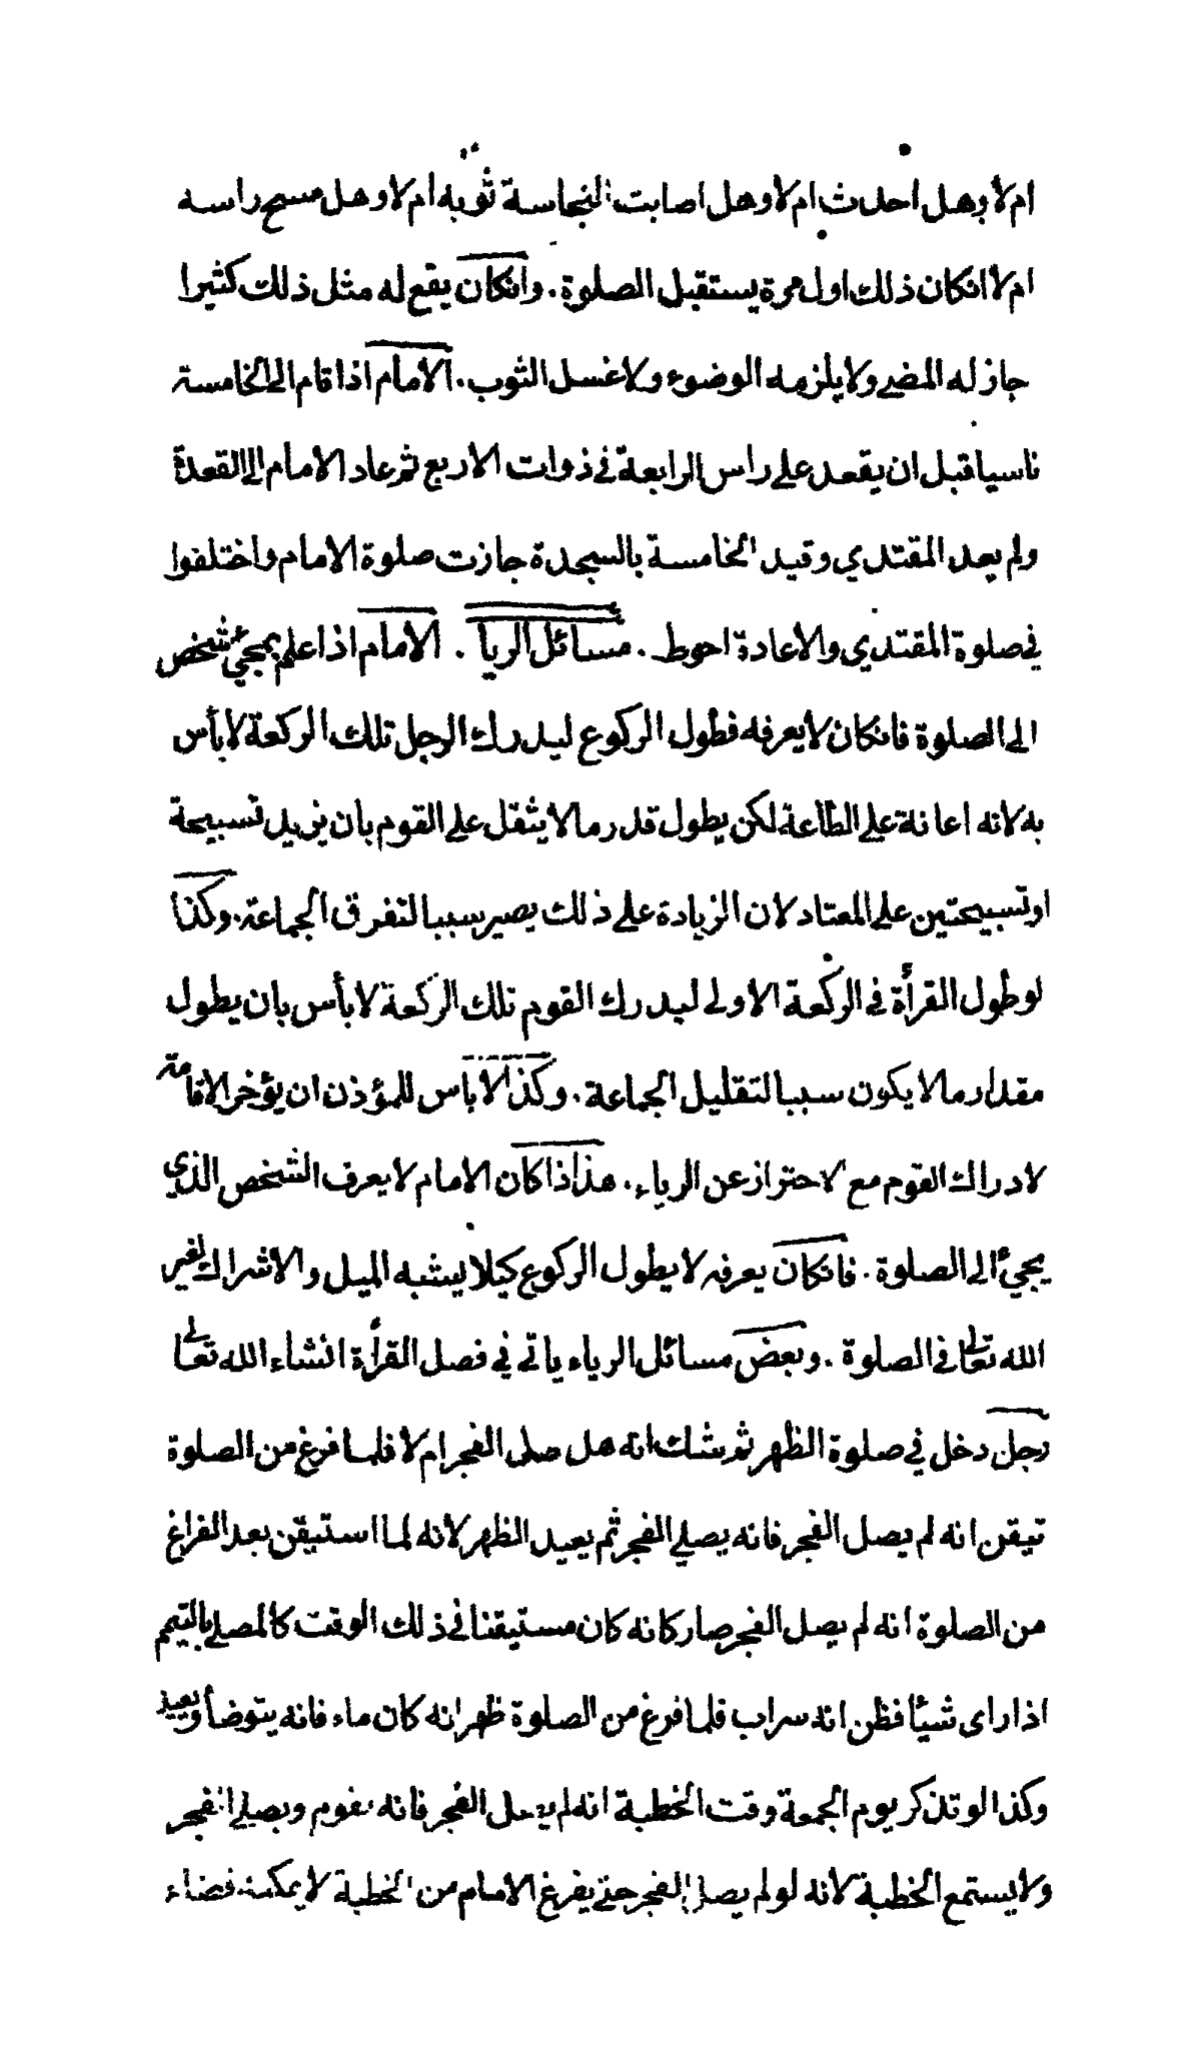 ام لا وهل احدث ام لا وهل اصابت النجاسة ثوبه ام لا وهل مسح راسه
ام لا انكان ذلك اول مرة يستقبل الصلوة . وانكان يقع له مثل ذلك كثيرا
جاز له المضي ولا يلزمه الوضوء ولا غسل الثوب . الامام اذا قام الى الخامسة
ناسيا قبل ان يقعد على راس الرابعة في ذوات الاربع ثم عاد الامام الى القعدة
ولم يعد المقتدي وقيد الخامسة بالسجدة جازت صلوة الامام واختلفوا
في صلوة المقتدي والاعادة احوط . مسائل الريا . الامام اذا علم بمجيئ شخص
الى الصلوة فانكان لا يعرفه فطول الركوع ليدرك الرجل تلك الركعة لا بأس
به لانه اعانة على الطاعة لكن يطول قدر ما لا يثقل على القوم بان يزيد تسبيحة
او تسبيحتين على المعتاد لان الزيادة على ذلك يصير سببا لتفرق الجماعة . وكذا
لو طول القرأة في الركعة الاولى ليدرك القوم تلك الركعة لا بأس بان يطول
مقدار ما لا يكون سببا لتقليل الجماعة . وكذا لا باس للمؤذن ان يؤخر الاقامة
لادراك القوم مع لاحتراز عن الرياء . هذا اذا كان الامام لا يعرف الشخص الذي
يجيئ الى الصلوة . فانكان يعرفه لا يطول الركوع كيلا يشبه الميل والاشراك لغير
الله تعالى في الصلوة . وبعض مسائل الرياء ياتي في فصل القرأة انشاء الله تعالى
رجل دخل في صلوة الظهر ثم شك انه هل صلى الفجر ام لا فلما فرغ من الصلوة
تيقن انه لم يصل الفجر فانه يصلي الفجر ثم يعيد الظهر لانه لما استيقن بعد الفراغ
من الصلوة انه لم يصل الفجر صار كانه كان مستيقنا في ذلك الوقت كالمصلي بالتيمم
اذا راى شيئا فظن انه سراب فلما فرغ من الصلوة ظهر انه كان ماء فانه يتوضأ ويعيد
وكذا لو تذكر يوم الجمعة وقت الخطبة انه لم يصل الفجر فانه يقوم ويصلي الفجر
ولا يستمع الخطبة لانه لو لم يصل الفجر حتى يفرغ الامام من الخطبة لا يمكنه قضاء